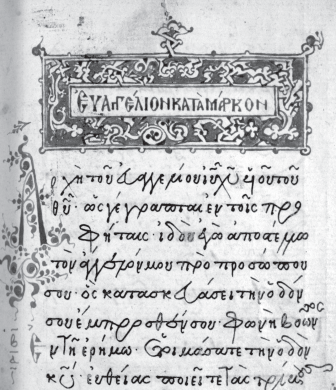 ΕΥΑΓΓΕΛΙΟΝ ΚΑΤΑ ΜΑΡΚΟΝ
Αρχὴ τοῦ εὐαγγελίου ιυ χυ υυ τοῦ
θυ· ὡς γέγραπται ἐν τοῖς προ
φήταις· ἰδοὺ ἐγὼ ἀποστέλλω
τὸν ἄγγελόν μου πρὸ προσώπου
σου· ὃς κατασκευάσει τὴν ὁδόν
σου ἔμπροσθέν σου· φωνὴ βοῶντος
ἐν τῇ ἐρήμω· ἑτοιμάσατε τὴν ὁδὸν
κυ· εὐθείας ποιεῖτε τὰς τρίβους